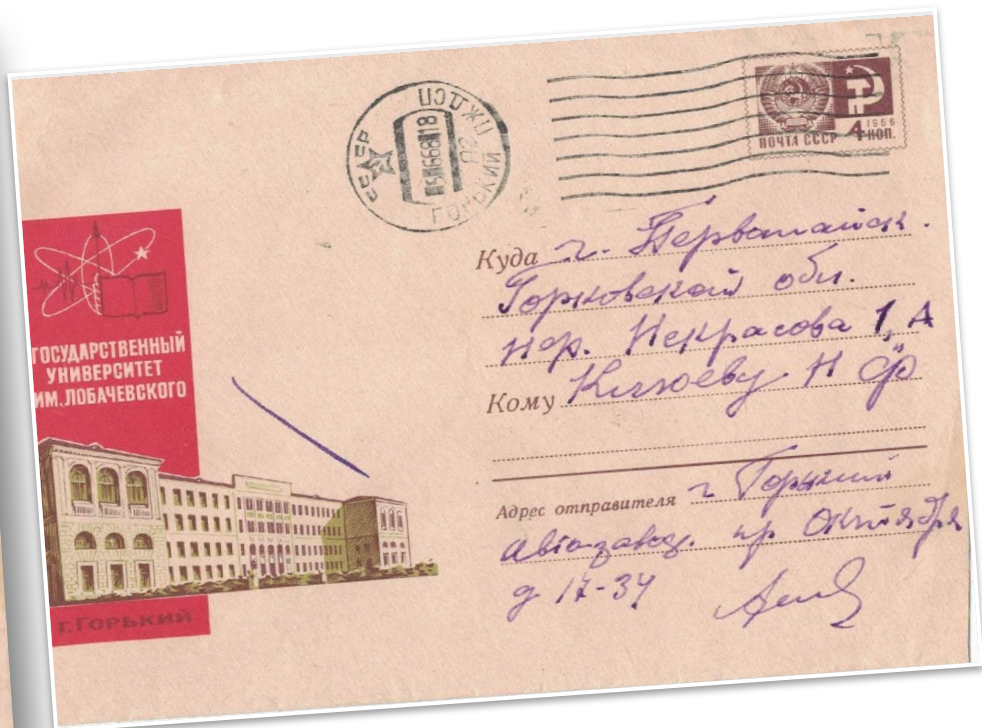 СССР
ГОРЬКИЙ
1966
4 КОП.
ПОЧТА СССР
ГОСУДАРСТВЕННЫЙ
УНИВЕРСИТЕТ
ИМ. ЛОБАЧЕВСКОГО
г. ГОРЬКИЙ
Куда г. Первомайск.
Горьковской обл.
Некрасова 1, А
Кому Н Ф
Адрес отправителя г Горький
Автозавод. пр Октября
д 17-34